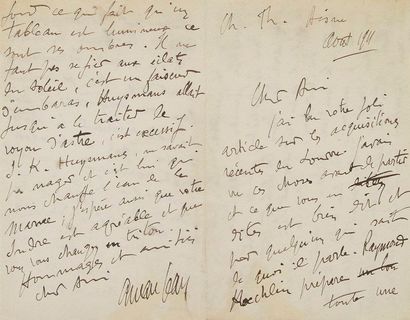 Ch. Th. Aisne
Août 1911
Cher Ami
J'ai lu votre joli
article sur les acquisitions
récentes du Louvre j'avais
vu ces choses avant de partir
et ce que vous en
dites est bien dit et
par quelqu'un qui sait
de quoi il parle. Raymond
Koechlin prépare
toute une
tout ce qui fait qu'un
tableau est lumineux ce
sont ses ombres. Il ne
faut pas se fier aux éclats
du soleil, c'est un faiseur
d'embarras, Huysmans allait
jusqu'à le traiter de
voyou d'astre, c'est excessif.
J. K. Huysmans, ne savait
pas nager et c'est lui qui
nous change l'eau de la
Marne, j'espère aussi que votre
Indre est agréable et que
vous vous changez en triton.
Hommages et amitiés
cher Ami
Aman Jean